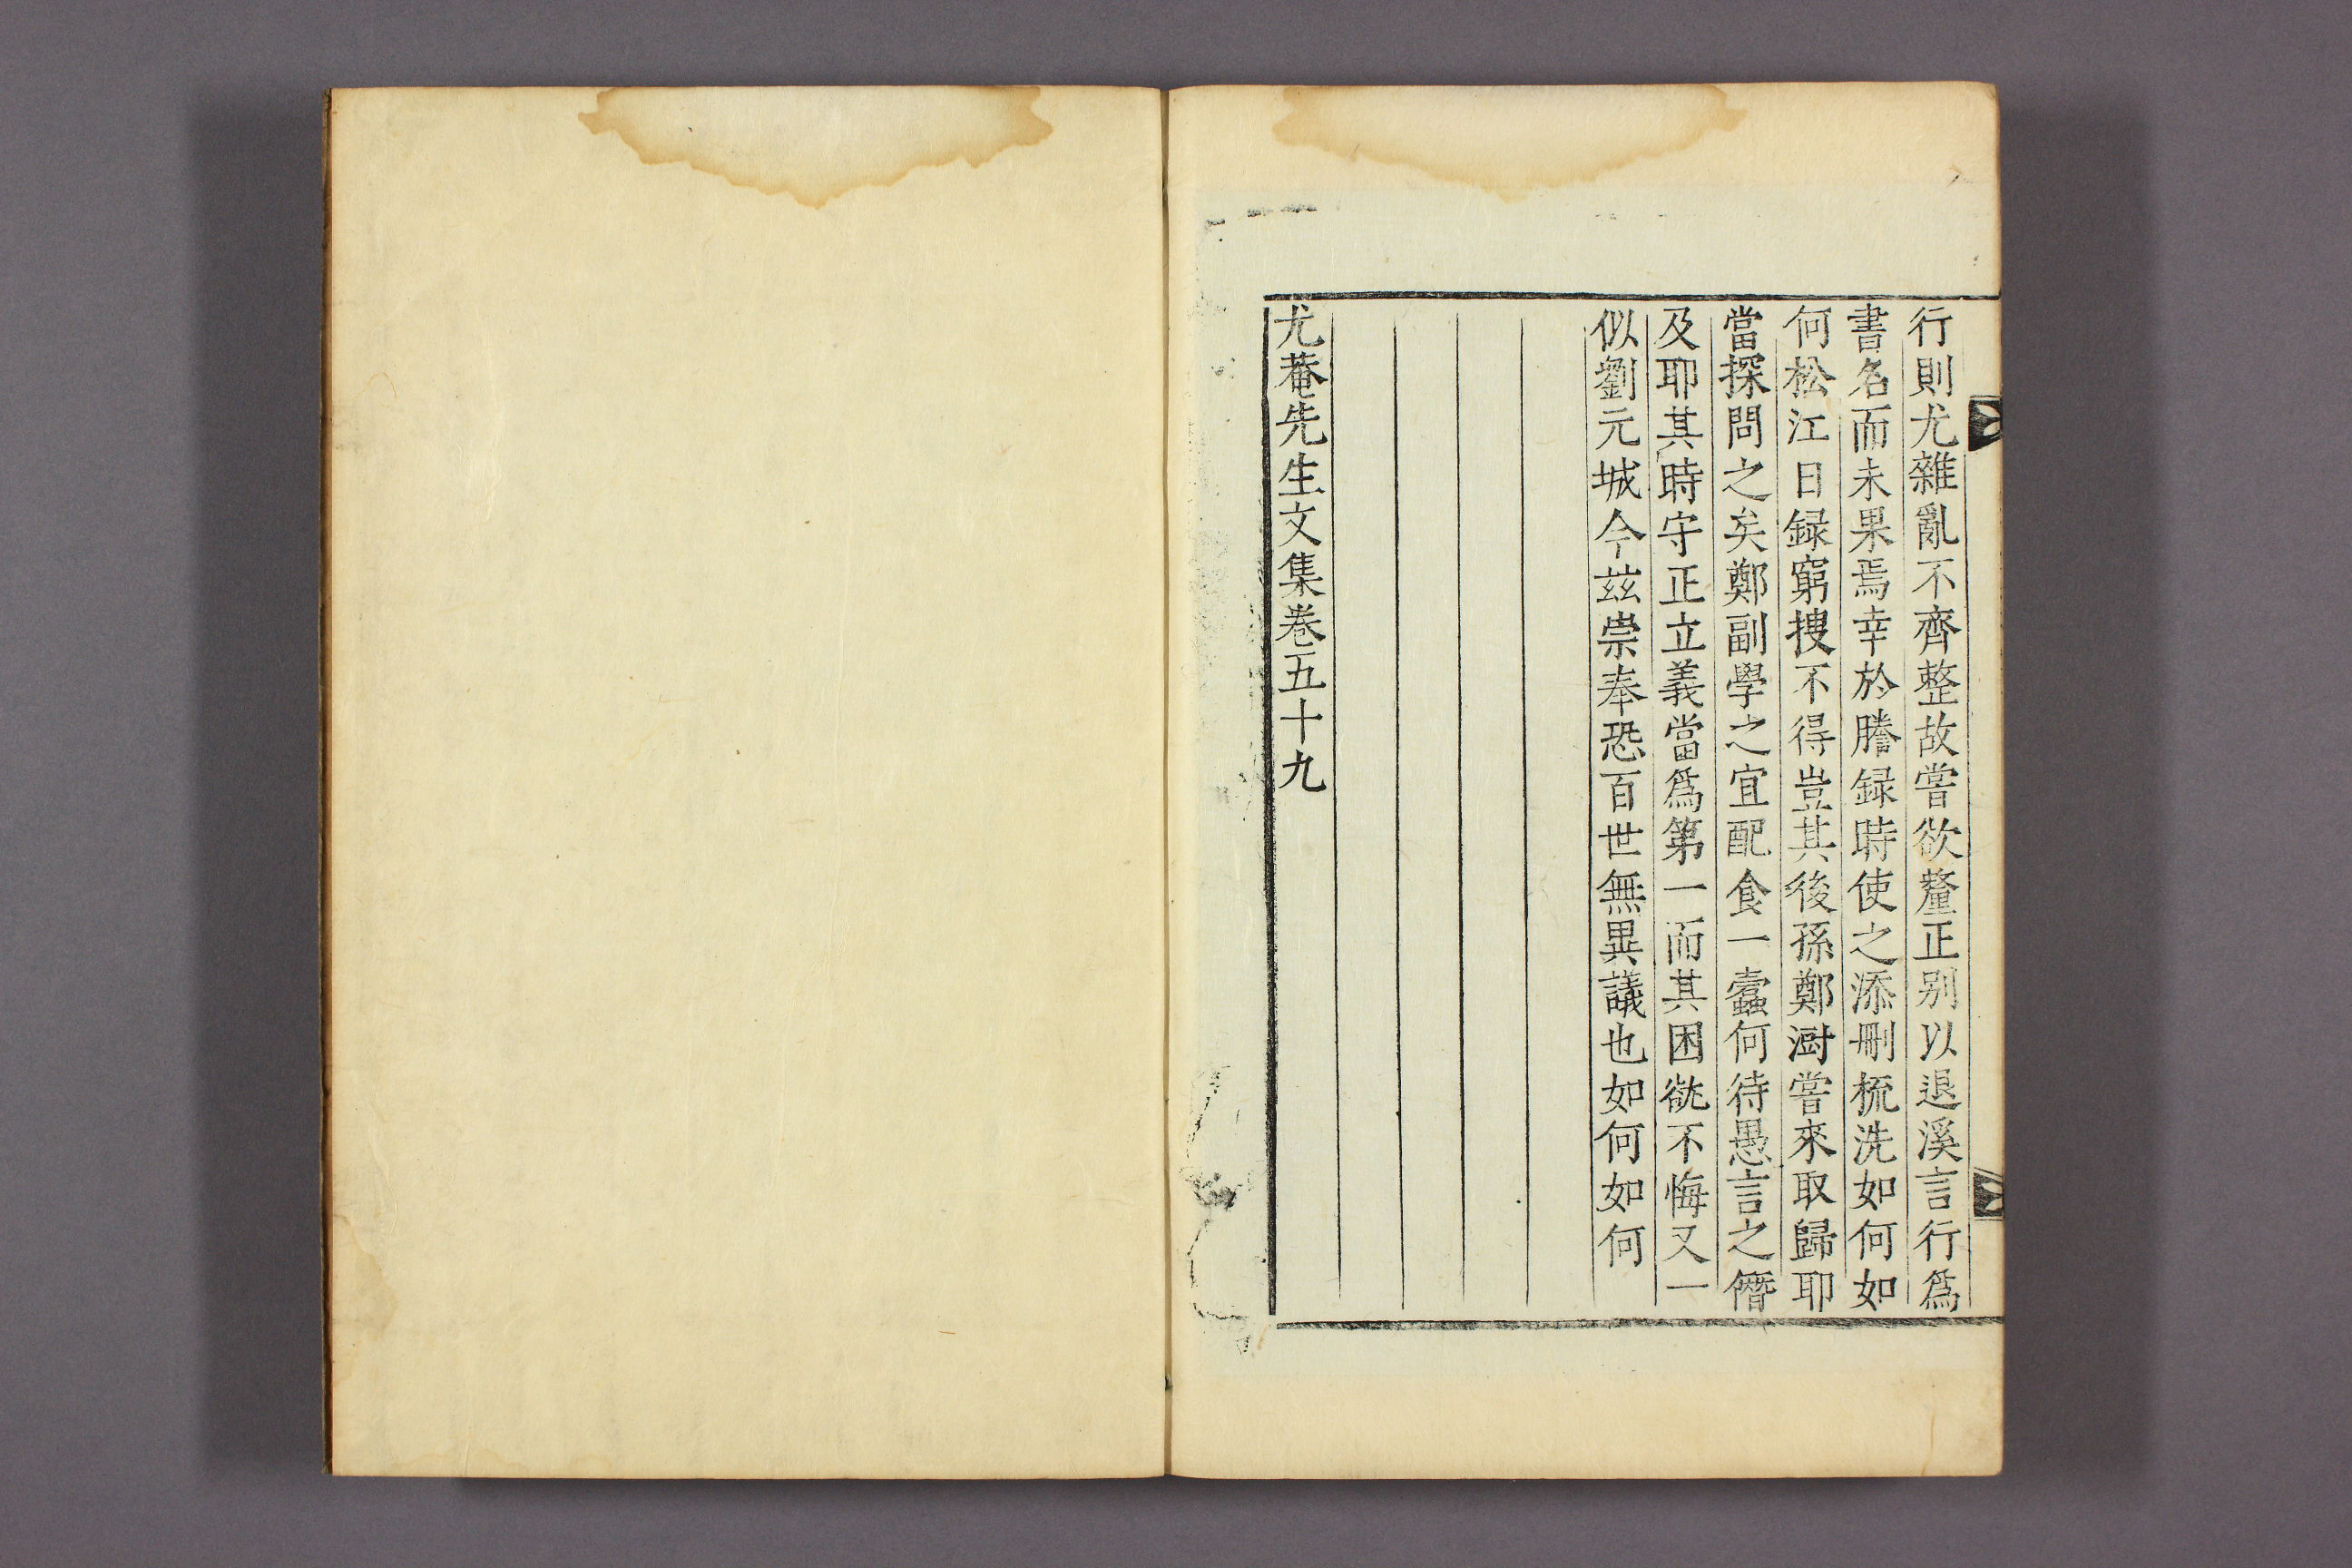 行則尤雜亂不齊整故嘗欲釐正別以退溪言行爲
書名而未果焉幸於謄録時使之添刪梳洗如何如
何松江日録窮搜不得豈其後孫鄭澍嘗來取歸耶
當探問之矣鄭副學之宜配食一蠹何待愚言之僭
及耶其時守正立義當爲第一而其困毓不悔又一
似劉元城今玆崇奉恐百世無異議也如何如何
尤菴先生文集卷五十九